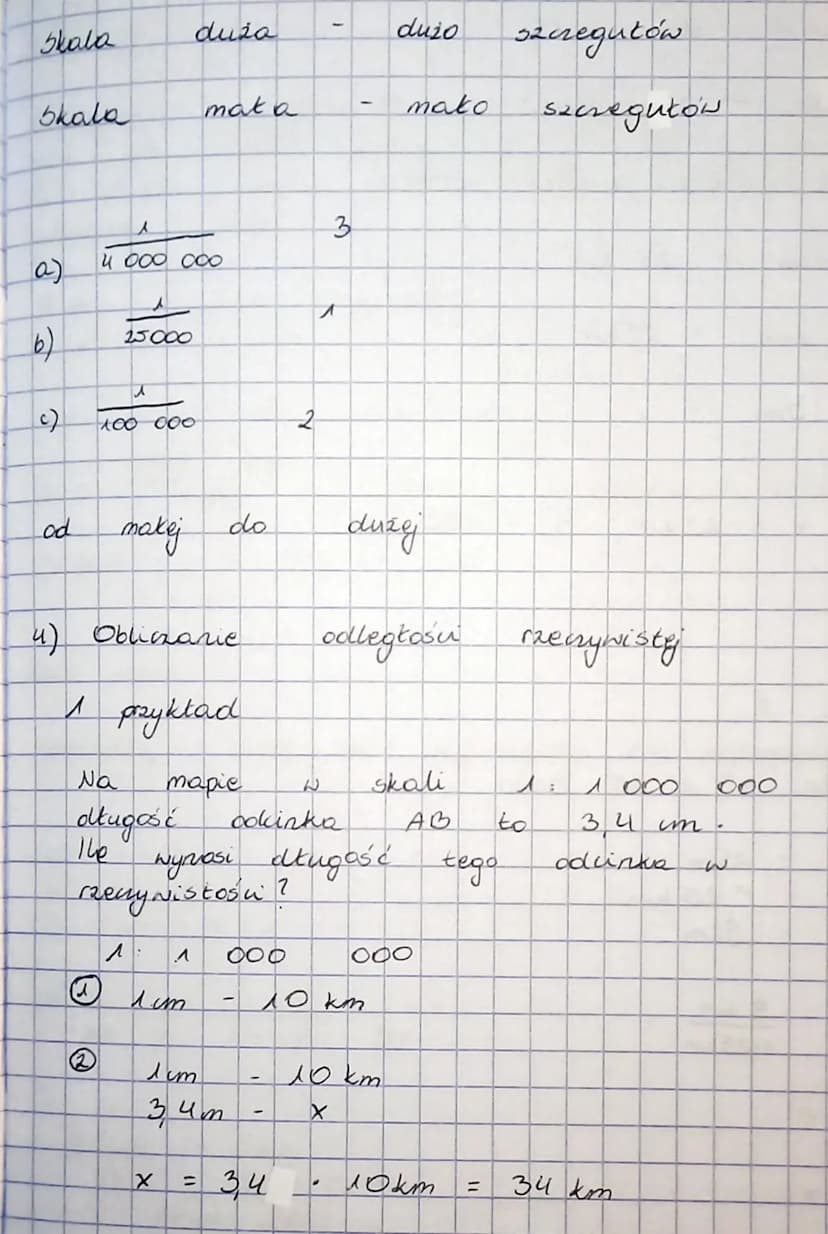 Skala duża - dużo szczegułów
Skala mała - mało szczegułów
a) 1/4 000 000 3
b) 1/25000 1
c) 1/100 000 2
od małej do dużej
4) Obliczanie odległości rzeczywistej
1 przykład
Na mapie w skali 1 : 1 000 000
długość odcinka AB to 3,4 cm.
Ile wynosi długość tego odcinka w
rzeczywistości?
1 : 1 000 000
① 1cm - 10 km
② 1cm - 10 km
3,4m - x
x = 3,4 · 10km = 34 km